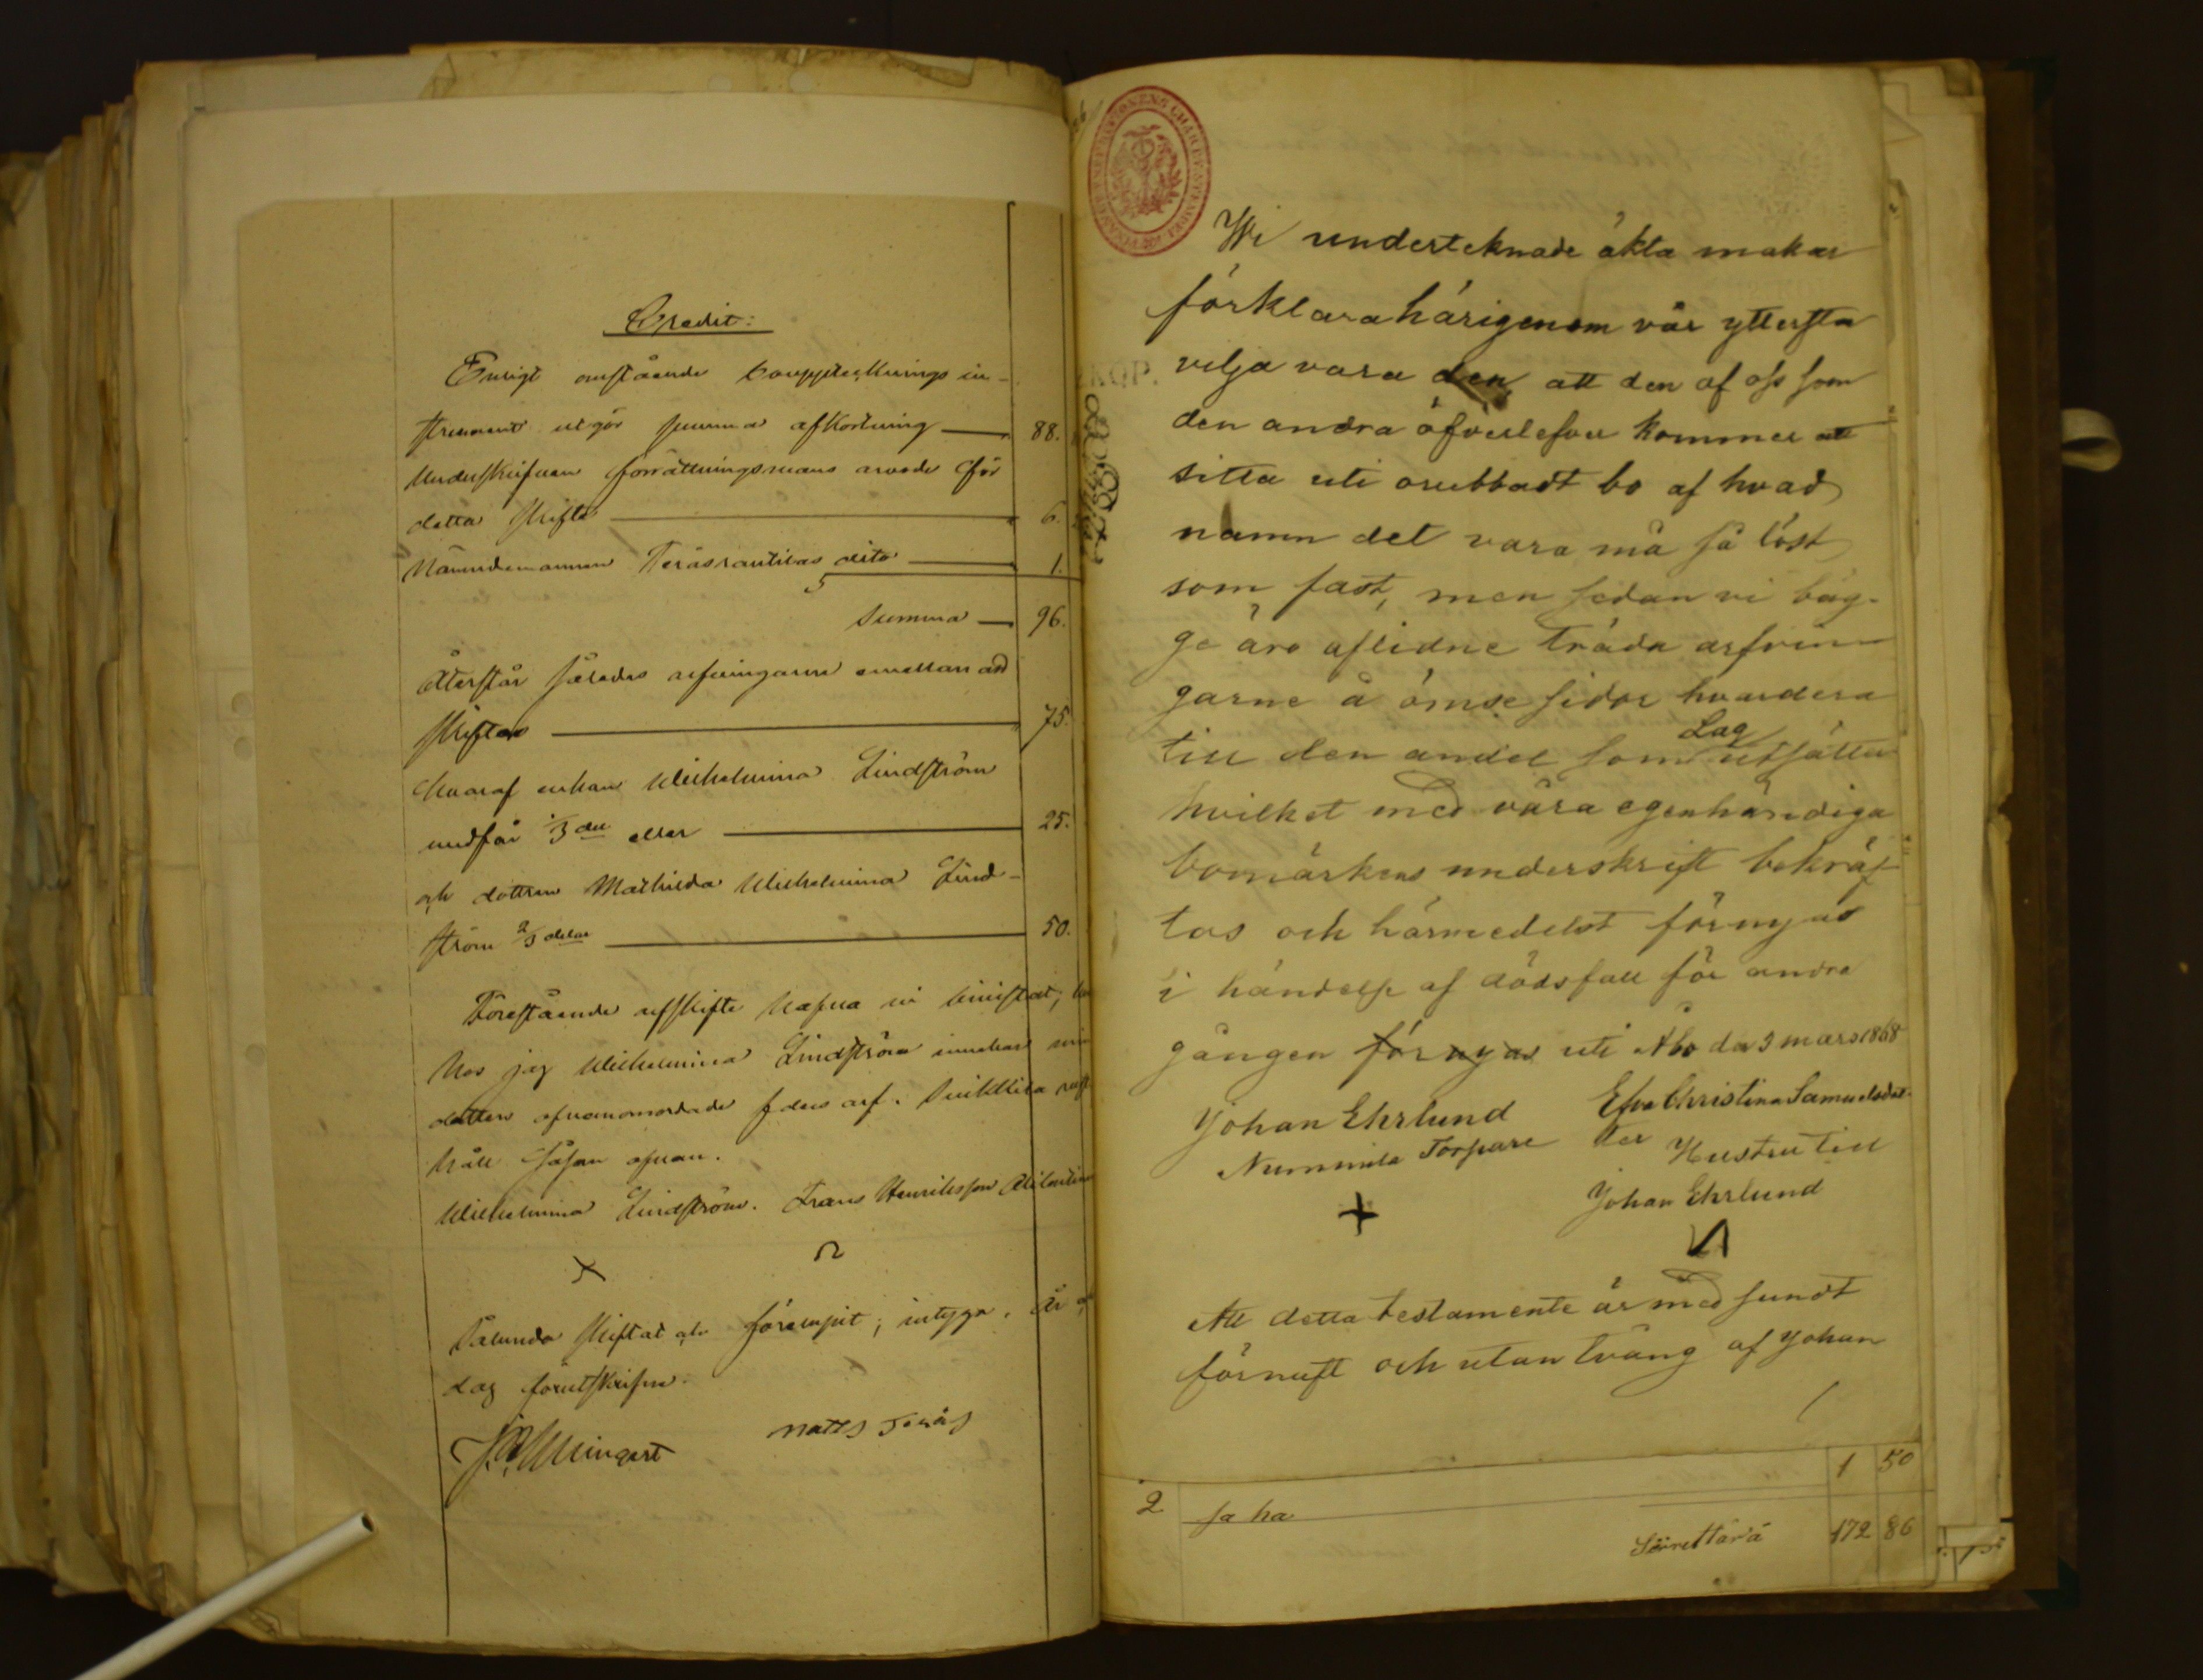 Credit:
Enligt omstående bouppteckningsin-
strument utgör summa afkortning — 88.
Underskrifven förrättningsmans arvode för
detta skifte — 6.
Nämndemannen Teräsrautilas dito — 1.
Summa — 96.
Återstår således arfvingarne emellan att
skiftas — 75.
Hvaraf enkan Wilhelmina Lindström
undfår 1/3 del eller — 25.
och dottren Mathilda Wilhelmina Lind-
ström 2/3 delar — 50.
Förestående arfskifte
jag Wilhelmina Lindström innehar min
dotters ofvanomordade faders arf.
håll såsom ofvan.
Wilhelmina Lindström. Frans Henriksson
Sålunda skiftat och intyga. År och
dag förutskrifne.
Matts Teräs
Wi underteknade äkta makar
förklara härigenom vår yttersta
vilja vara den, att den af oss som
den andra öfverlefver kommer att
sitta uti orubbadt bo af hvad
namn det vara må så löst
som fast, men sedan vi bäg-
ge äro aflidne träda arfvin-
garne å ömse sidor hvardera
till den andel som Lag utsätter
hvilket med våra egenhändiga
bomärkens underskrift bekräf-
tas och härmedelst förnyas
i händelse af dödsfall för andra
gången förnyas uti Åbo den 3 mars 1868
Johan Ehrlund Efva Christina Samuelsdot-
Nummila Torpare ter Hustru till
Johan Ehrlund
Att detta testamente är med sundt
förnuft och utan tvång af Johan
1 50
2 ja ha
Siirrettävä 172 86